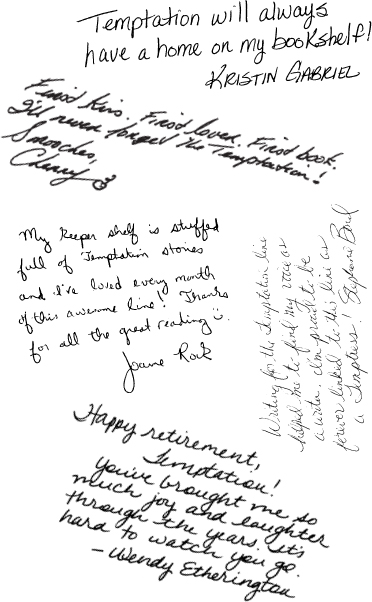 Temptation will always
have a home on my bookshelf!
KRISTIN GABRIEL
First kiss. First lover. First book.
I'll never forget the Temptation!
Smooches,
Cherry
My keeper shelf is stuffed
full of Temptation stories
and I've loved every month
of this awesome line! Thanks
for all the great reading
Joanne Rock
Writing for the Temptation line
helped me to find my voice as
a writer. I'm proud to be
forever linked to this line as
a Temptress! Stephanie Bond
Happy retirement,
Temptation!
You've brought me so
much joy and laughter
through the years. It's
hard to watch you go.
- Wendy Etherington